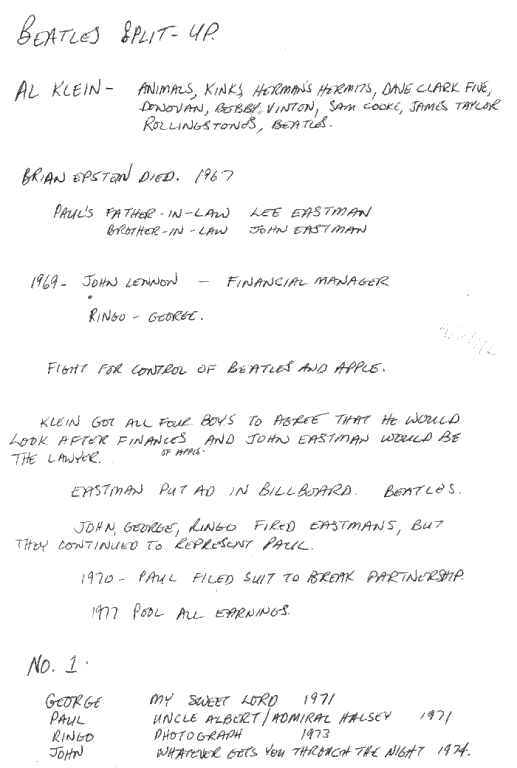 BEATLES SPLIT-UP.
AL KLEIN - ANIMALS, KINKS, HERMAN'S HERMITS, DAVE CLARK FIVE,
DONOVAN, BOBBY VINTON, SAM COOKE, JAMES TAYLOR
ROLLINGSTONES, BEATLES.
BRIAN EPSTEIN DIED. 1967
PAUL'S FATHER-IN-LAW LEE EASTMAN
BROTHER-IN-LAW JOHN EASTMAN
1969- JOHN LENNON - FINANCIAL MANAGER
RINGO - GEORGE.
FIGHT FOR CONTROL OF BEATLES AND APPLE.
KLEIN GOT ALL FOUR BOYS TO AGREE THAT HE WOULD
LOOK AFTER FINANCES AND JOHN EASTMAN WOULD BE
OF APPLE.
THE LAWYER.
EASTMAN PUT AD IN BILLBOARD. BEATLES.
JOHN, GEORGE, RINGO FIRED EASTMANS, BUT
THEY CONTINUED TO REPRESENT PAUL.
1970 - PAUL FILED SUIT TO BREAK PARTNERSHIP.
1977 POOL ALL EARNINGS.
NO. 1.
GEORGE MY SWEET LORD 1971
PAUL UNCLE ALBERT/ADMIRAL HALSEY 1971
RINGO PHOTOGRAPH 1973
JOHN WHATEVER GETS YOU THROUGH THE NIGHT 1974.